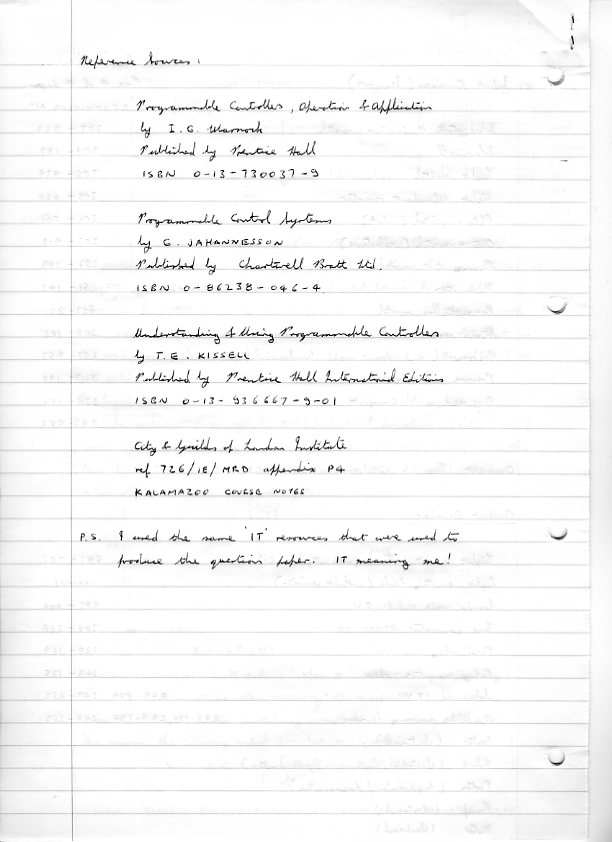 Reference Sources :
Programmable Controllers, Operation & Application
by I. G. Warnock
Published by Prentice Hall
ISBN 0-13-730037-9
Programmable Control Systems
by G. JAHANNESSON
Published by Chartwell Bratt Ltd.
ISBN 0-86238-046-4
Understanding & Using Programmable Controllers
by T. E. KISSELL
Published by Prentice Hall International Editions
ISBN 0-13-936667-9-01
City & Guilds of London Institute
ref 726/1E/MRD appendix P4
KALAMAZOO COURSE NOTES
P.S. I used the same 'IT' resources that were used to
produce the question paper. IT meaning me!